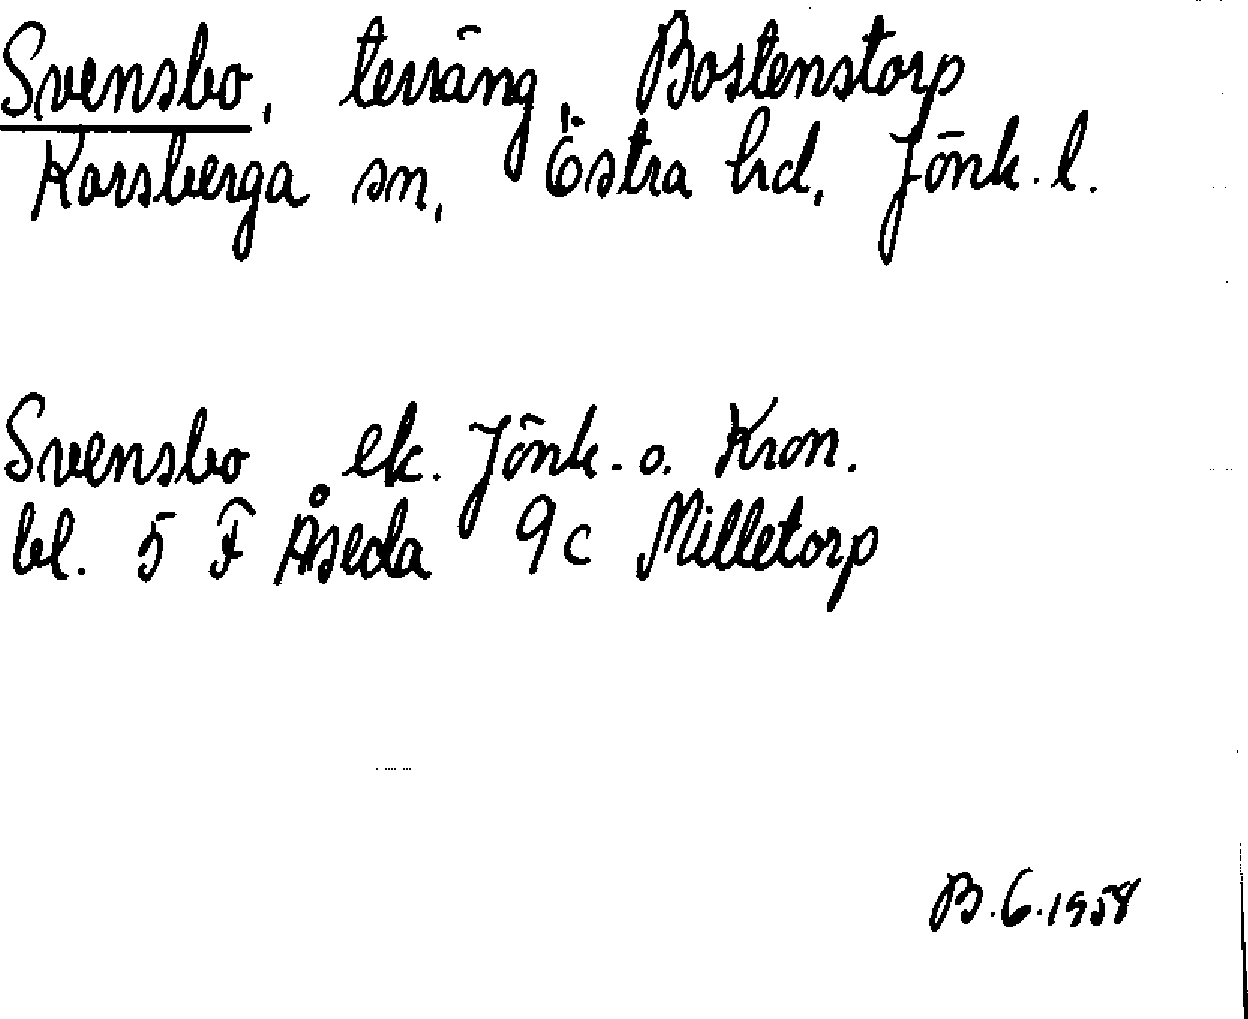 Svensbo, terräng, Bostenstorp
Korsberga sn, Östra hd, Jönk. l.
Svensbo ek. Jönk. o. Kron.
bl. 5 F Åseda 9c Milletorp
B.G.1958